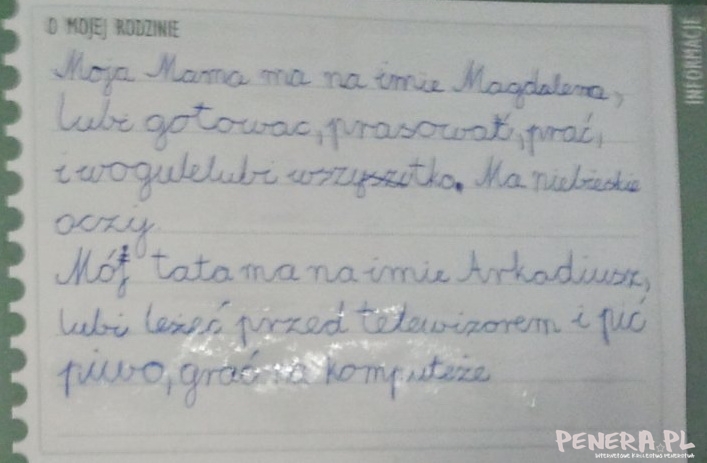 O MOJEJ RODZINIE
INFORMACJE
Moja Mama ma na imie Magdalena,
lubi gotowac, prasowat, prać,
i wogule lubi wszystko. Ma niebieskie
oczy
Mój tata ma na imie Arkadiusz,
lubi leżeć przed telewizorem i pić
piwo, grać na komputeże
PENERA.PL